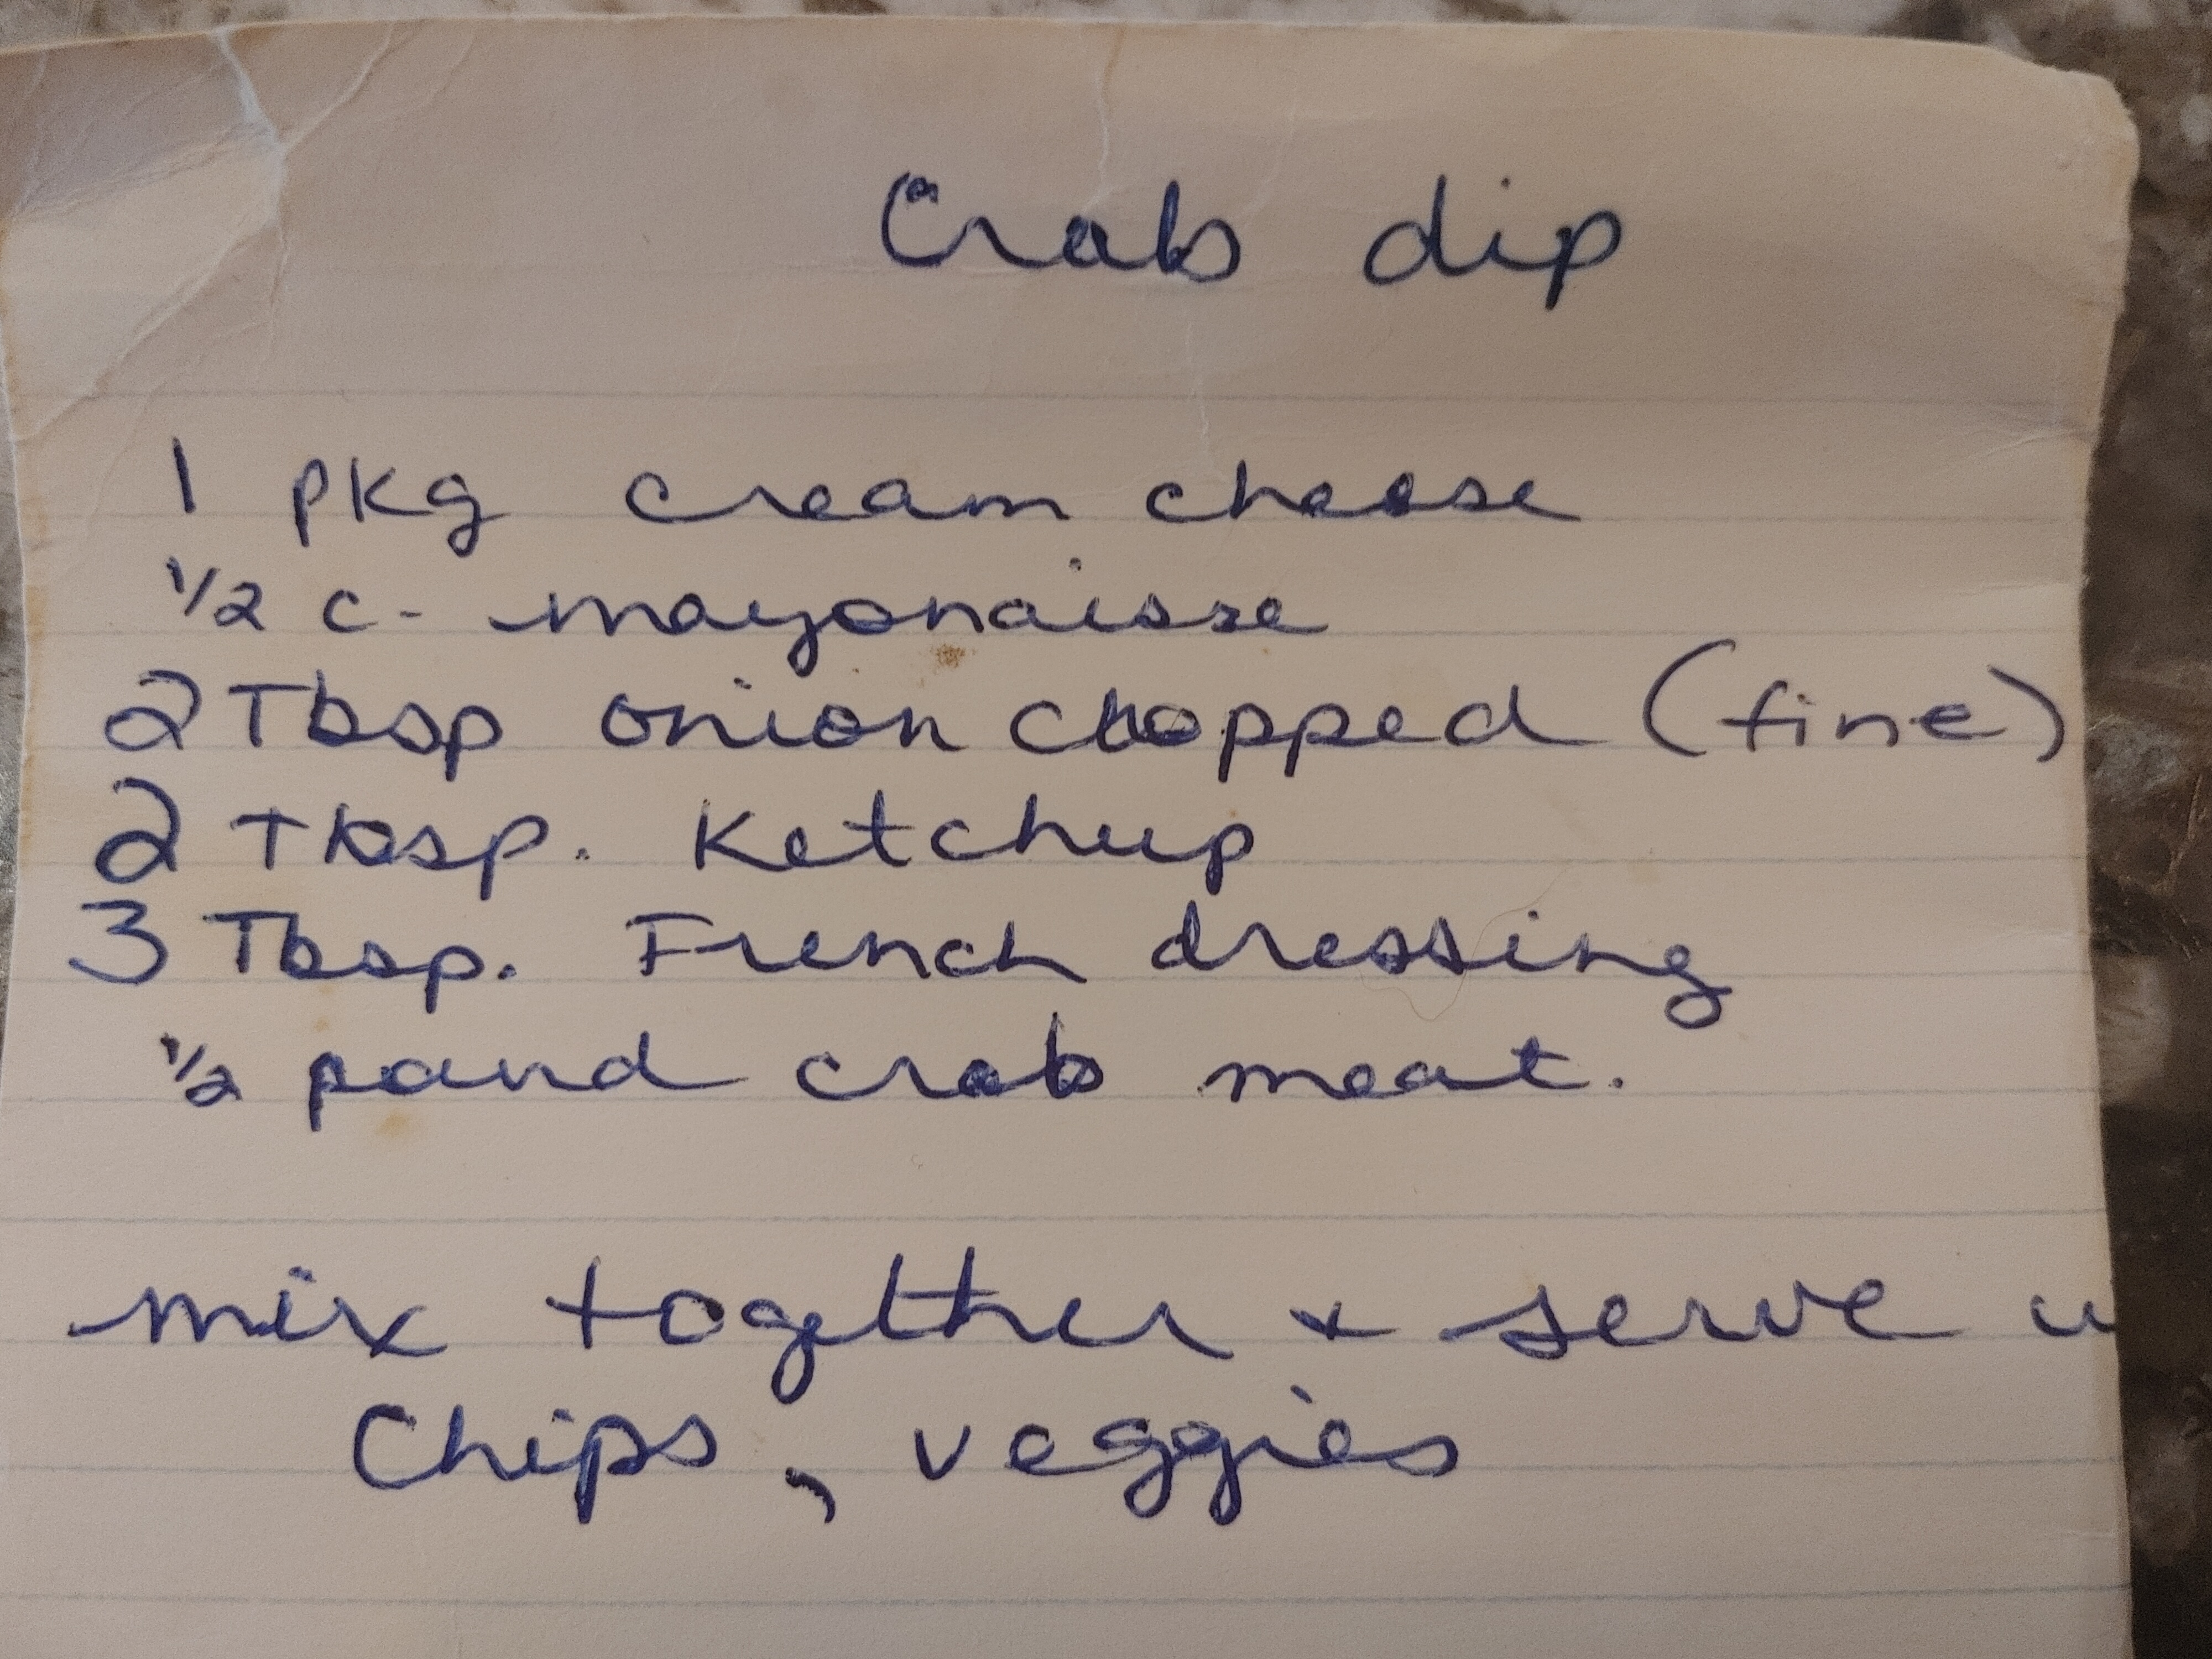 Crab dip
1 pkg cream cheese
1/2 c. mayonaisse
2 Tbsp onion chopped (fine)
2 Tbsp. Ketchup
3 Tbsp. French dressing
1/2 pound crab meat.
mix together + serve w
Chips, veggies